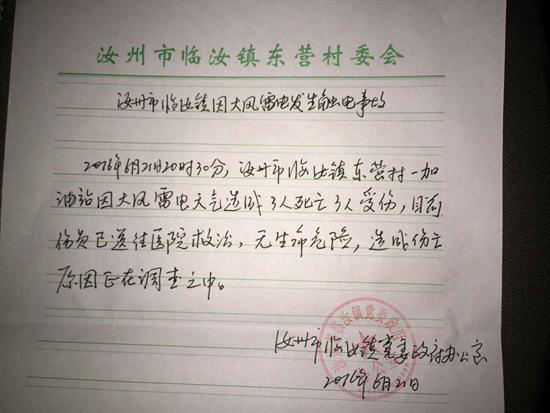 汝州市临汝镇东营村委会
汝州市临汝镇因大风雷电发生触电事故
2016年6月21日20时30分，汝州市临汝镇东营村一加
油站因大风雷电天气造成3人死亡3人受伤，目前
伤员已送往医院救治，无生命危险，造成伤亡
原因正在调查之中。
汝州市临汝镇党委政府办公室
2016年6月21日